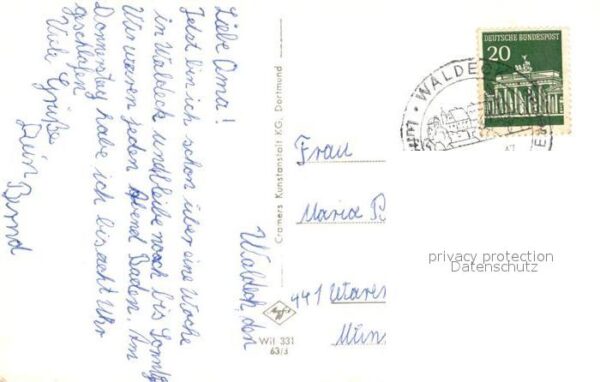 Waldeck, den
Liebe Oma!
Jetzt bin ich schon über eine Woche
in Waldeck und bleibe noch bis Sonntag
Wir waren jeden Abend Baden. Am
Donnerstag habe ich bis acht Uhr
geschlafen
Viele Grüße
Dein
Bernd
Cramers Kunstanstalt KG, Dortmund
Wil 331
63/3
Frau
Maria
441
Mün
DEUTSCHE BUNDESPOST
20
WALDE
privacy protection
Datenschutz